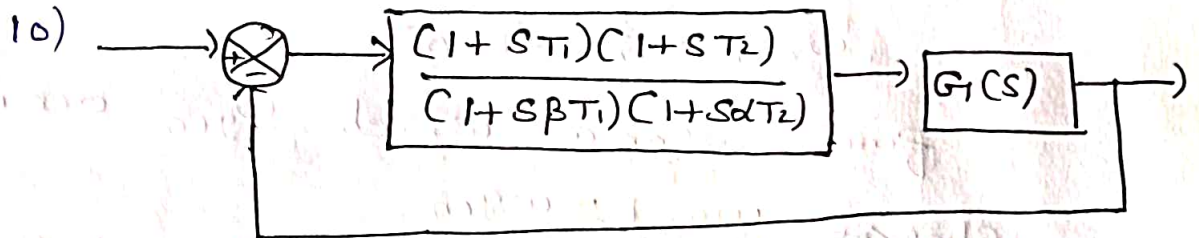 10)
+
(1+ST₁)(1+ST₂)
(1+SβT₁)(1+SαT₂)
G(S)
−